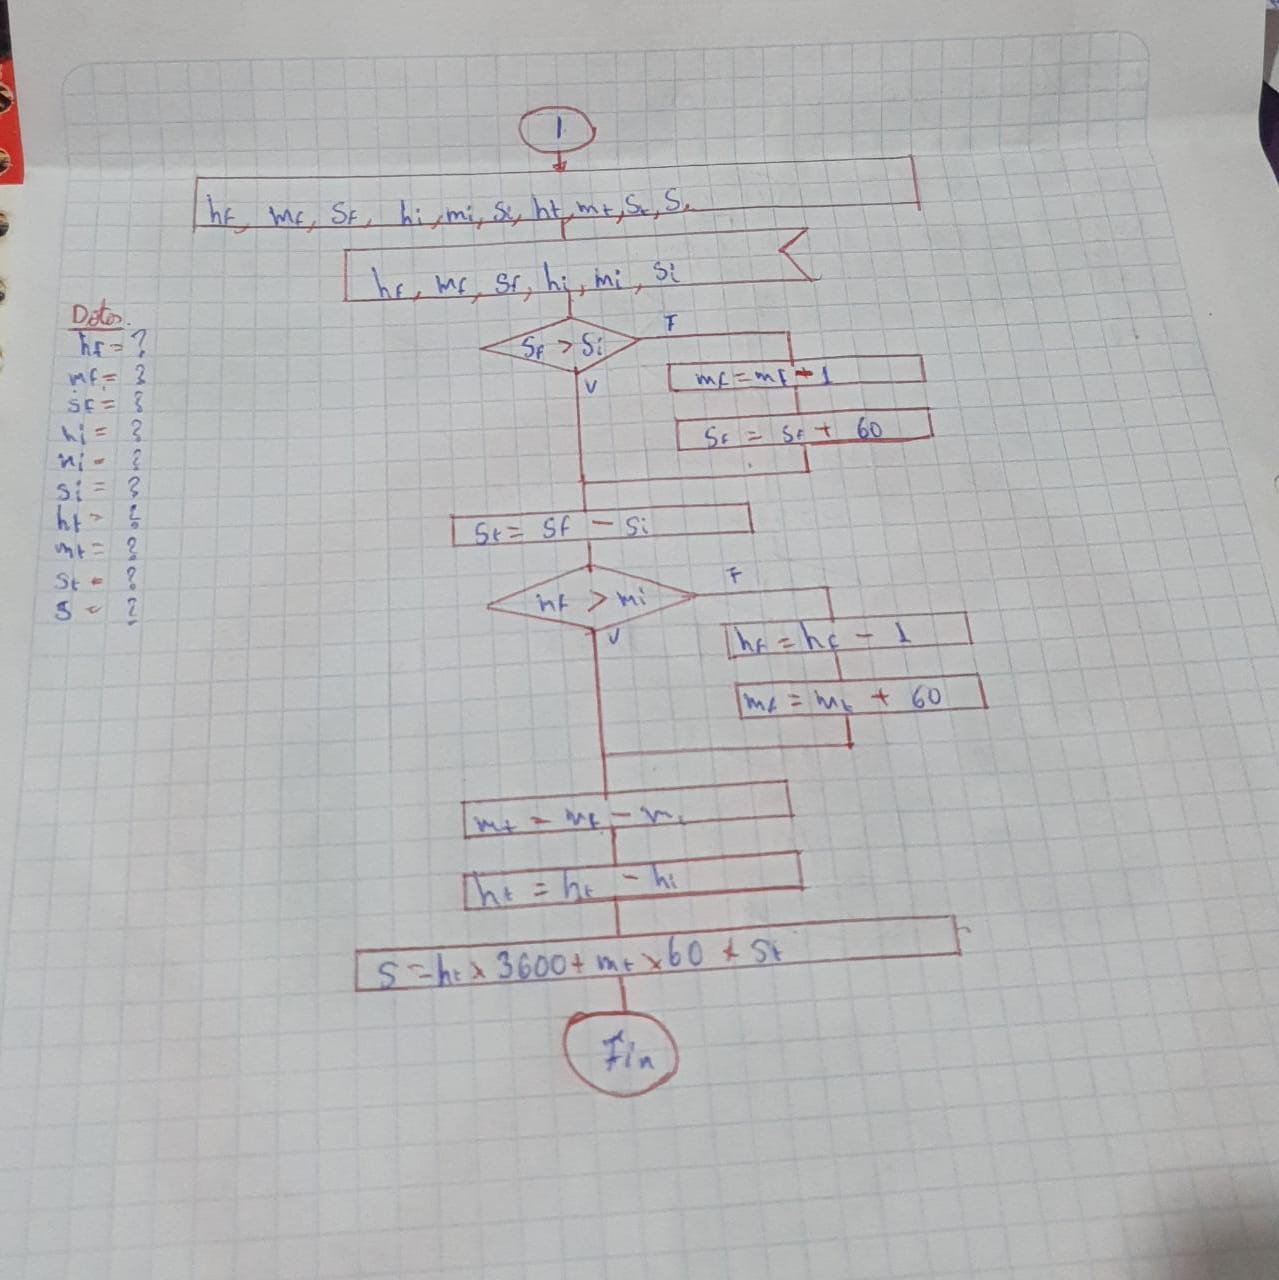 1
hf, mf, Sf, hi, mi, Si, ht, mt, St, S.
hf, mf, Sf, hi, mi, Si
Datos.
hf = ?
mf = ?
sf = ?
hi = ?
mi = ?
si = ?
ht = ?
mt = ?
St = ?
S = ?
Sf > Si
F
V
mf = mf - 1
Sf = Sf + 60
St = Sf - Si
mf > mi
F
V
hf = hf - 1
mf = mf + 60
mt = mf - mi
ht = hf - hi
S = ht x 3600 + mt x 60 + St
Fin